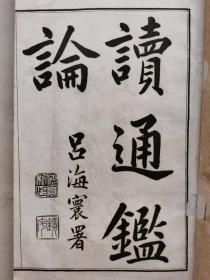 讀通鑑
論
呂海寰署